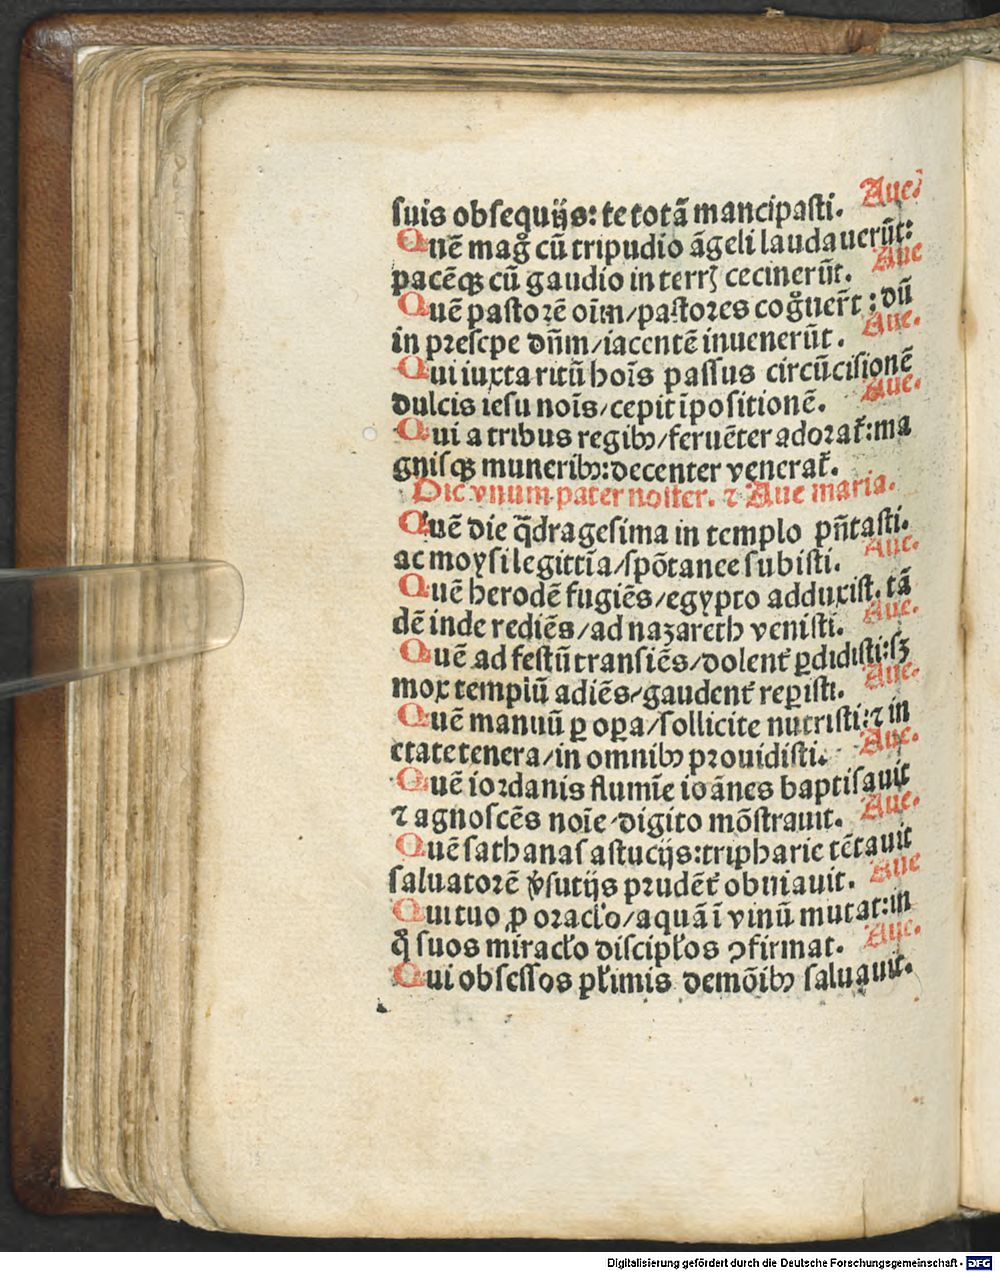 suis obsequijs: te totā mancipasti. Aue.
Quē magͦ cū tripudio āgeli laudauerūt:
pacēqꝫ cū gaudio in terrꝫ cecinerūt. Aue
Quē pastorē oīm/pastores cogͦuer̄t: dū
in presepe dn̄m/iacentē inuenerūt. Aue.
Qui iuxta ritū hoīs passus circūcisionē
dulcis iesu noīs/cepit īpositionē. Aue.
Qui a tribus regibꝰ/feruēter adorat᷑: ma
gnisqꝫ muneribꝰ: decenter venerat᷑.
Dic vnum pater noster. ⁊ Aue maria.
Quē die q̄dragesima in templo pn̄tasti.
ac moysi legittīa/spōtanee subisti. Aue.
Quē herodē fugiēs/egypto adduxist. tā
dē inde rediēs/ad nazareth venisti. Aue.
Quē ad festū transiēs/dolent᷑ ꝑdidisti: sꝫ
mox templū adiēs/gaudent᷑ reꝑisti. Aue.
Quē manuū ꝑ oꝑa/sollicite nutristi: ⁊ in
etate tenera/in omnibꝰ prouidisti. Aue.
Quē iordanis flumīe ioānes baptisauit
⁊ agnoscēs noīe/digito mōstrauit. Aue.
Quē sathanas astucijs: tripharie tētauit
saluatorē v̓sutijs prudēt᷑ obuiauit. Aue
Qui tuo ꝓ oracl̓o/aquā ī vinū mutat: in
qͦ suos miracl̓o discipl̓os ꝯfirmat. Aue.
Qui obsessos pl̓imis demōibꝰ saluauit.
Digitalisierung gefördert durch die Deutsche Forschungsgemeinschaft - DFG